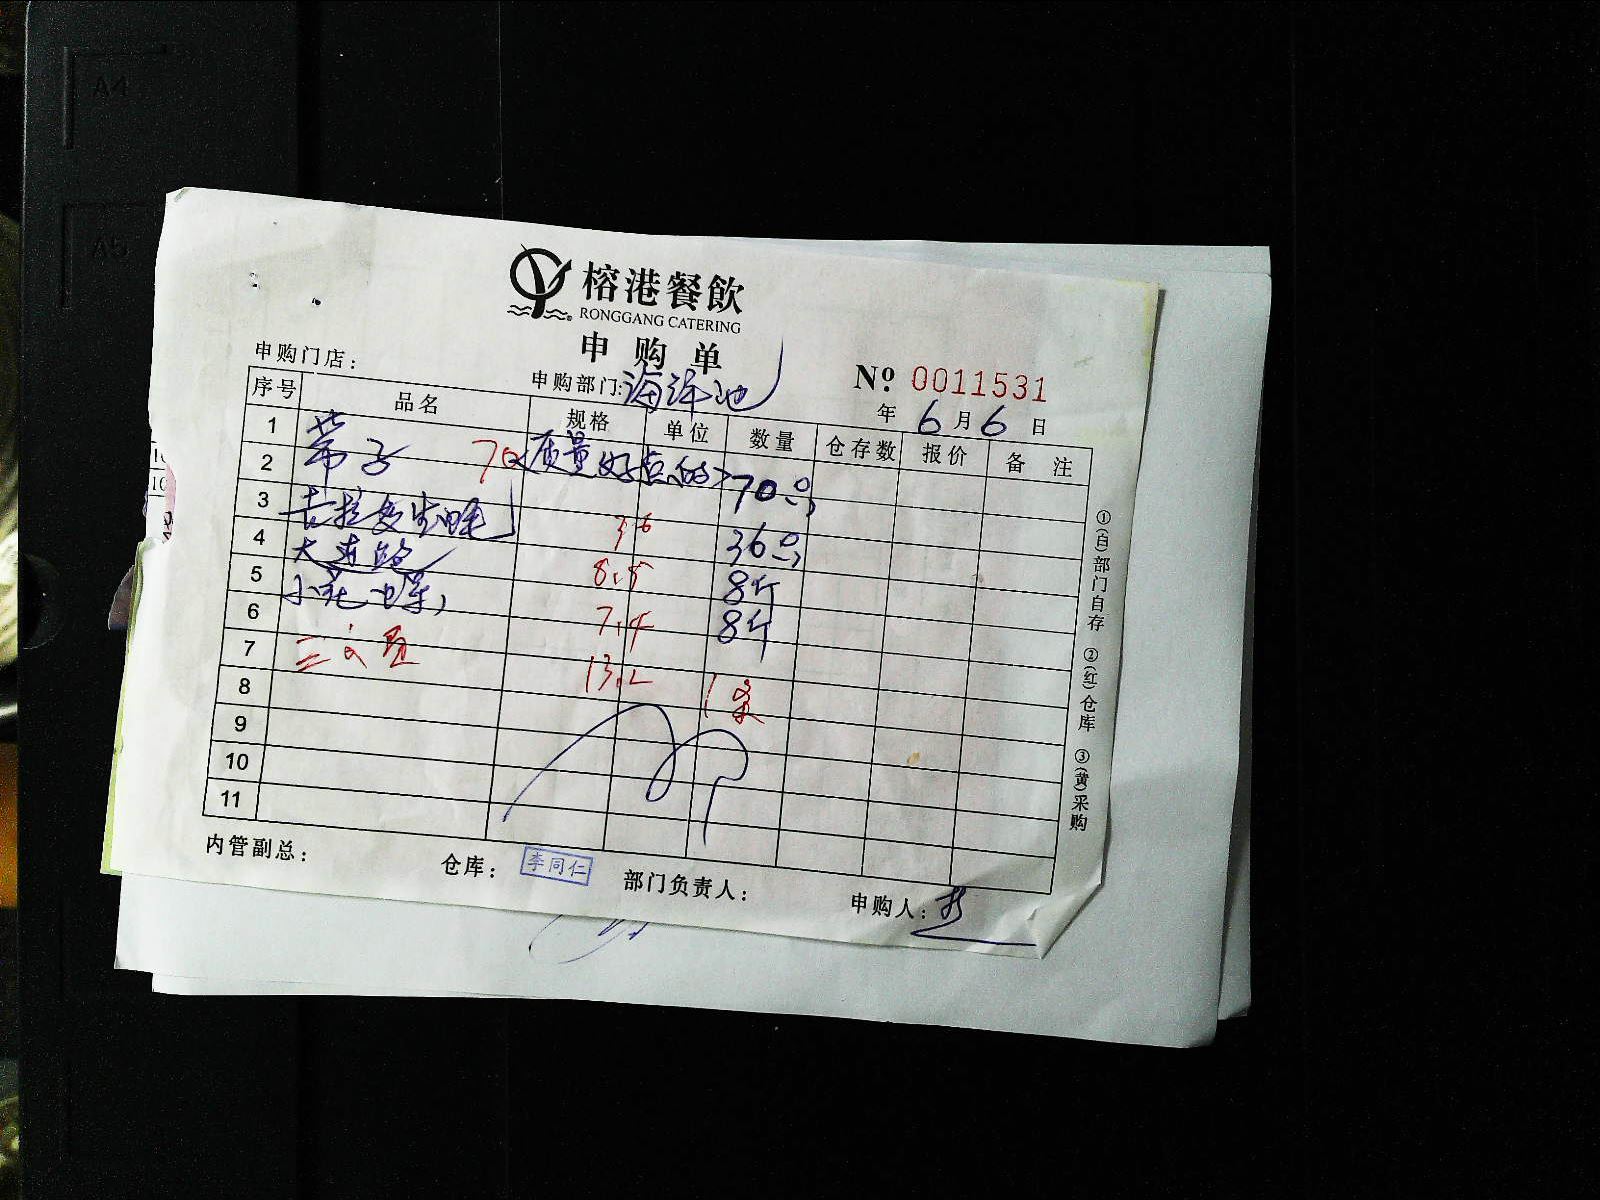 A4
A5
榕港餐飲
RONGGANG CATERING
申购单
申购门店:
申购部门:海洋池
№ 0011531
年 6 月 6 日
序号 品名 规格 单位 数量 仓存数 报价 备注
1
2 带子 70 <质量好点的> 70只
3
4 36 36只
5 8.5 8斤
6 7.4 8斤
7 三文鱼 13.2 1条
8
9
10
11
内管副总: 仓库: 李同仁 部门负责人: 申购人:
①(白)部门自存 ②(红)仓库 ③(黄)采购